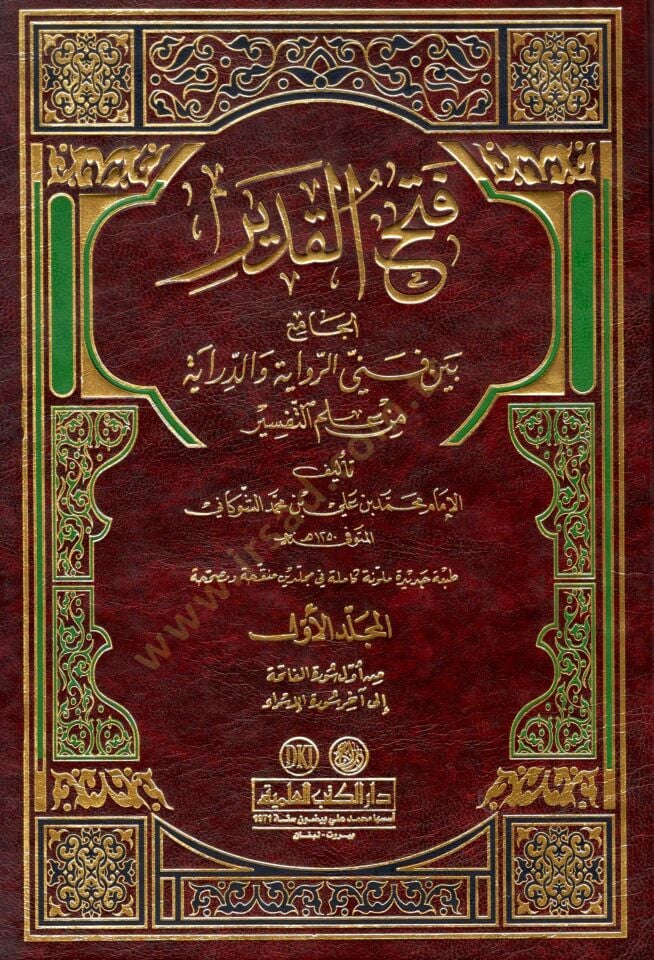 فَتْحُ القَدِيرِ
الجَامِعُ
بَيْنَ فَنَّيِ الرِّوَايَةِ وَالدِّرَايَةِ
مِنْ عِلْمِ التَّفْسِيرِ
تأليف
الإمام محمد بن علي بن محمد الشوكاني
المتوفى ١٢٥٠هـ
طبعة جديدة ملونة كاملة في مجلدين منقحة ومصححة
المجلد الأوّل
من أول سورة الفاتحة
إلى آخر سورة الإسراء
DKI
دار الكتب العلمية
أسسها محمد علي بيضون سنة 1971
بيروت - لبنان
www.irsad.com